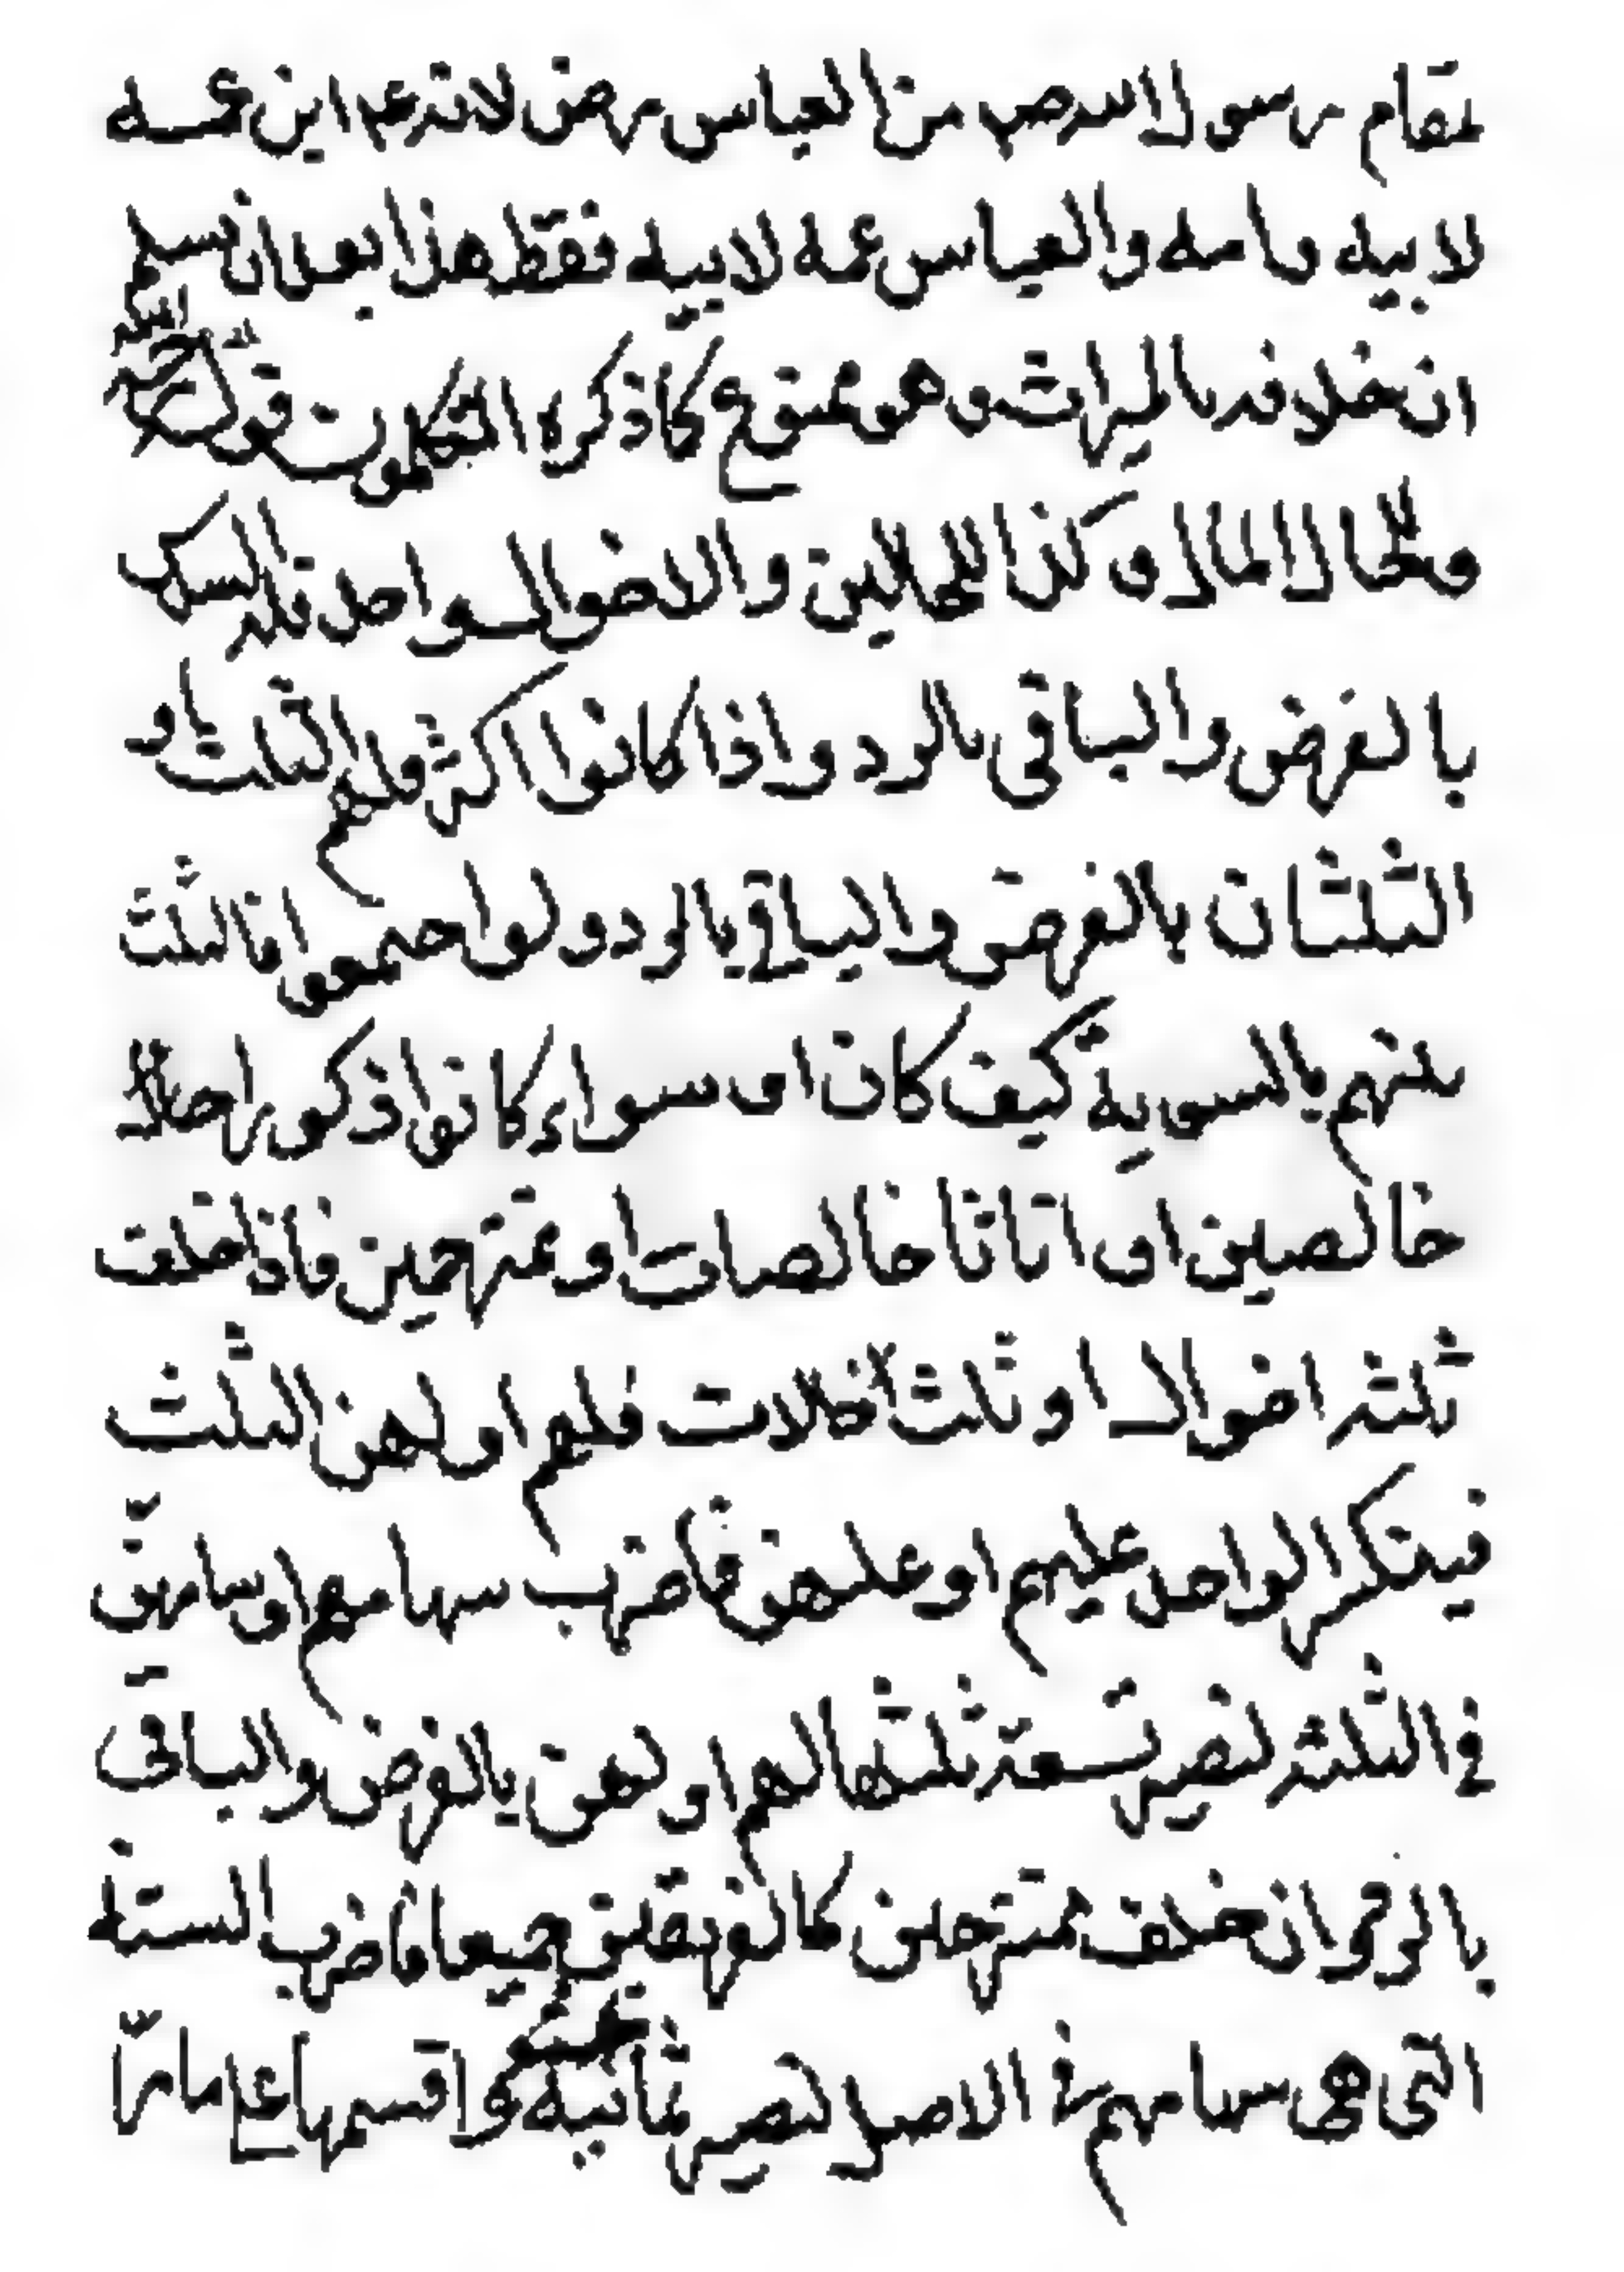 بمقام رسول الله ص من العباس رض لانه عم ابن عمه
لابيه وامه والعباس عمه لابيه فقط هذا بعد ان نسلم
ان خلافته بالميراث وهو ممنوع كما ذكره المتكلمون قوله
وللخال المال وكذا للخالين والاخوال ولو احد فله السدس
بالفرض والباقي بالرد واذا كانوا اكثر فلهم الثلث او
الثلثان بالفرض والباقي بالرد ولو اجتمعوا فالثلث
بينهم بالسوية كيف كان اى سواء كانوا ذكورا
خالصين او اناثا خالصات او ممتزجين فاذا خلف
ثلثة اخوال او ثلث خالات فلهم او لهن الثلث
فينكسر الواحد عليهم او عليهن فاضرب سهامهم او سهامهن
في الثلثة لتصير تسعة ثلثها لهم او لهن بالفرض والباقي
بالرد وان خلف ممتزجين كالفريقين جميعا فاضرب الستة
التى هى سهامهم في الاصل لتصير ثمانية واقسمها على ما مر